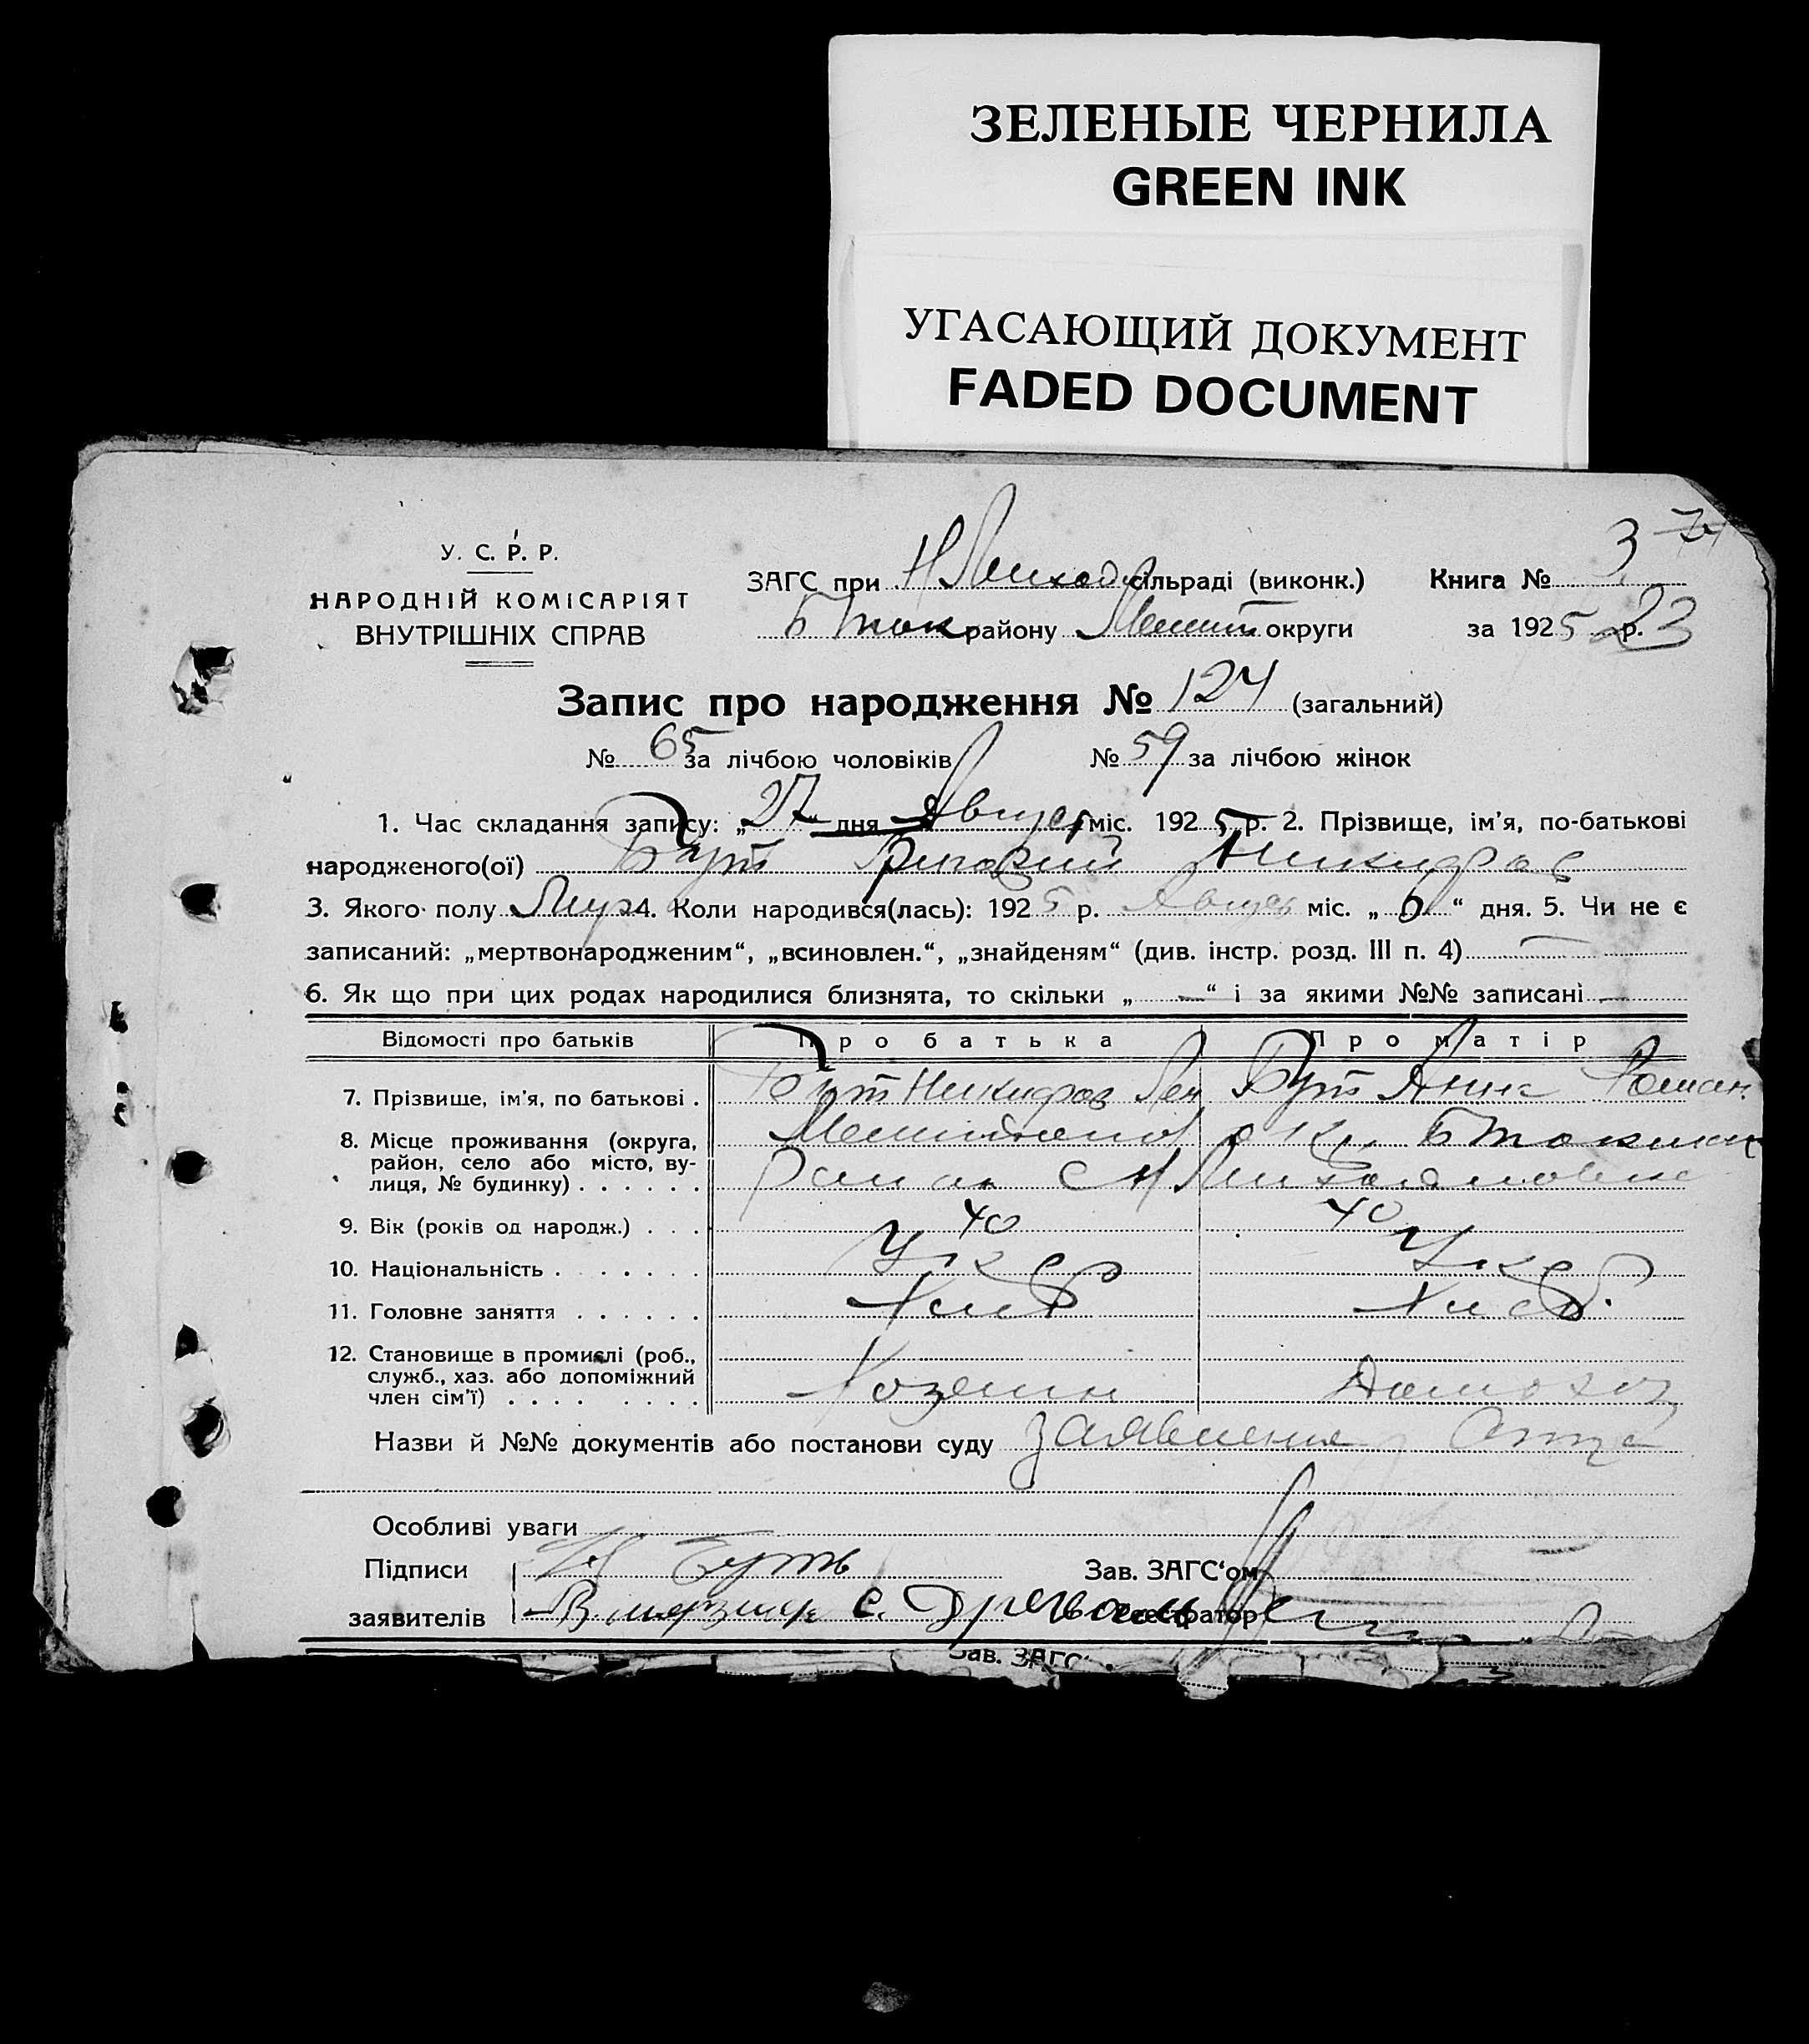 ЗЕЛЕНЫЕ ЧЕРНИЛА
GREEN INK
УГАСАЮЩИЙ ДОКУМЕНТ
FADED DOCUMENT
У. С. Р. Р.
НАРОДНІЙ КОМІСАРІЯТ
ВНУТРІШНІХ СПРАВ
ЗАГС при сільраді (виконк.) Книга № 3
Б Ток району Мелит округи за 1925 р. 23
Запис про народження № 124 (загальний)
№ 65 за лічбою чоловіків № 59 за лічбою жінок
1. Час складання запису: „27“ дня Август міс. 1925 р. 2. Прізвище, ім'я, по-батькові
народженого(ої) Бут Григорий Никифоров
3. Якого полу Муж 4. Коли народився(лась): 1925 р. Август міс. „6“ дня. 5. Чи не є
записаний: „мертвонародженим“, „всиновлен.“, „знайденям“ (див. інстр. розд. III п. 4) —
6. Як що при цих родах народилися близнята, то скільки „—“ і за якими №№ записані —
Відомості про батьків Про батька Про матір
7. Прізвище, ім'я, по батькові . Бут Никифор Бут Анна Роман.
8. Місце проживання (округа, Мелитопол окр. БТокмак
район, село або місто, ву-
лиця, № будинку) . . . . . . Район С Н
9. Вік (років од народж.) . . . 40 40
10. Національність . . . . . . . Укр Укр
11. Головне заняття . . . . . . Хлеб Хлеб.
12. Становище в промислі (роб.,
служб., хаз. або допоміжний
член сім'ї) . . . . . . . . Хозяин Домохоз
Назви й №№ документів або постанови суду Заявление Отца
Особливі уваги
Підписи Н Буть Зав. ЗАГС'ом
заявителів Реєстратор
Зав. ЗАГС